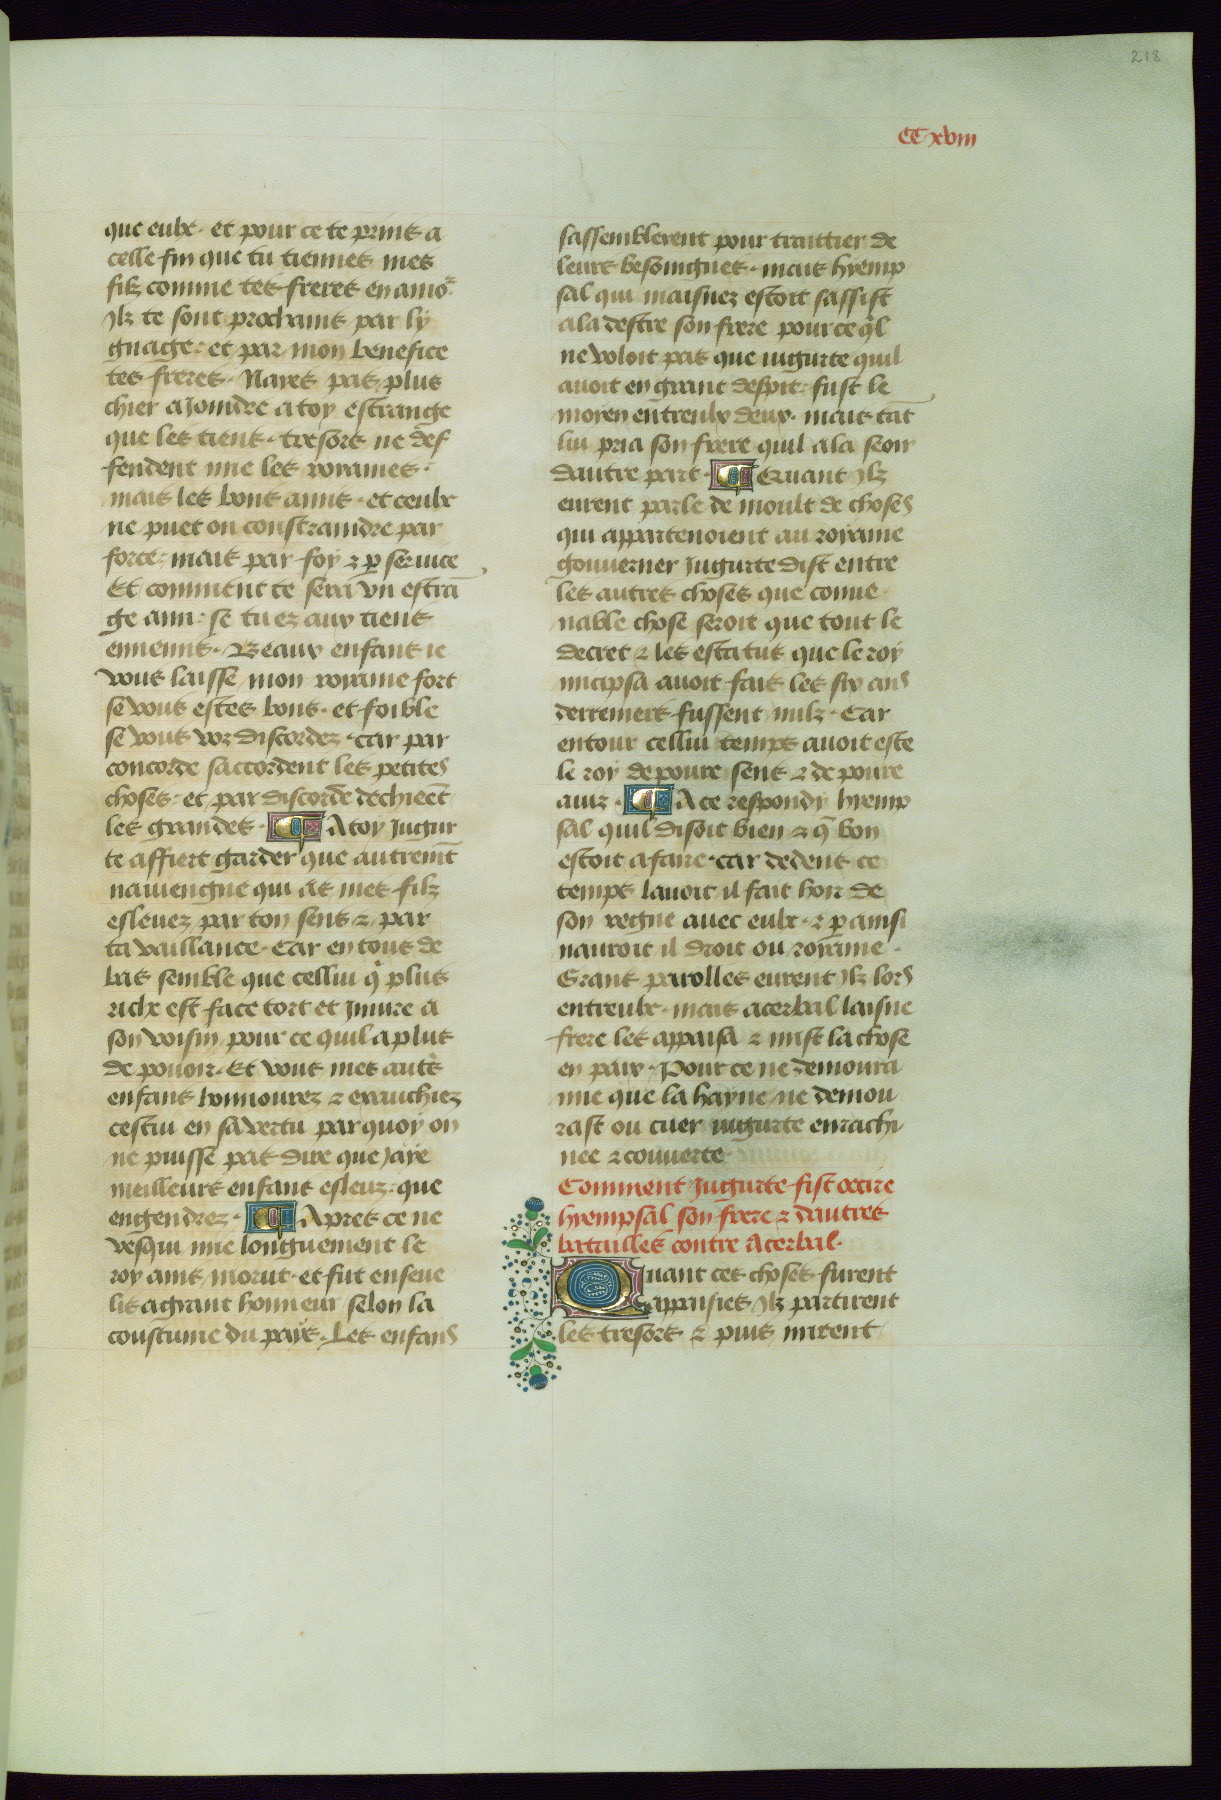 218
CC xviii
que eulx · et pour ce te prins a
celle fin que tu tiennes mes
filz comme tes freres en amor
Ilz te sont prochains par ly
gnage · et par mon benefice
tes freres · Naies pas plus
chier a Joindre a toy estrange
que les tiens · tresors ne def
fendent mie les royaumes ·
mais les bons amis · et ceulx
ne puet on constraindre par
force · mais par foy ⁊ ꝑ seruice
Et comment te sera vn estrā
ge ami · se tu ez aux tiens
ennemis · Beaux enfans ie
vous laisse mon royaume fort
se vous estes bons · et foible
se vous voz discordez · car par
concorde saccordent les petites
choses · et par discorde dechieēt
les grandes · A toy Jugur
te affiert garder que autremēt
nauiengne qui as mes filz
esleuez par ton sens ⁊ par
ta vaillance · Car en tous de
bas semble que cellui q̄ plus
riche est face tort et Iniure a
son voisin pour ce quil a plus
de pouoir · Et vous mes autres
enfans honnourez ⁊ exauchiez
cestui en sa vertu par quoy on
ne puisse pas dire que Jaye
meilleurs enfans esleuz · que
engendrez · Apres ce ne
vesqui mie longuement le
roy ains morut · et fut enseue
lis a grant honneur selon la
coustume du pays · Les enfans
sassemblerent pour traittier de
leurs besoingnes · mais hyemp
sal qui maisnez estoit sassist
a la destre son frere pour ce q̄l
ne voloit pas que iugurte quil
auoit en grant despit · fust le
moyen entreulx deux · mais tāt
lui pria son frere quil ala seoir
dautre part · Quant Ilz
eurent parle de moult de choses
qui appartenoient au royaume
gouuerner Jugurte dist entre
les autres choses que conue
nable chose seroit que tout le
decret ⁊ les estatus que le roy
micipsa auoit fais les six ans
derreniers fussent nulz · Car
entour cellui temps auoit este
le roy de poure sens ⁊ de poure
auiz · A ce respondy hyemp
sal quil disoit bien ⁊ q̄ bon
estoit a faire · car dedens ce
temps lauoit il fait hoir de
son regne auec eulx · ⁊ ꝑ ainsi
nauroit il droit ou royaume ·
Grans parolles eurent Ilz lors
entreulx · mais acerbal laisne
frere les appaisa ⁊ mist la chose
en paix · Pour ce ne demoura
mie que la hayne ne demou
rast ou cuer iugurte enrachi
nee ⁊ couuerte
Comment Jugurte fist occire
hyempsal son frere ⁊ dautres
batailles contre Acerbal ·
Quant ces choses furent
appaisies Ilz partirent
les tresors ⁊ puis mirent